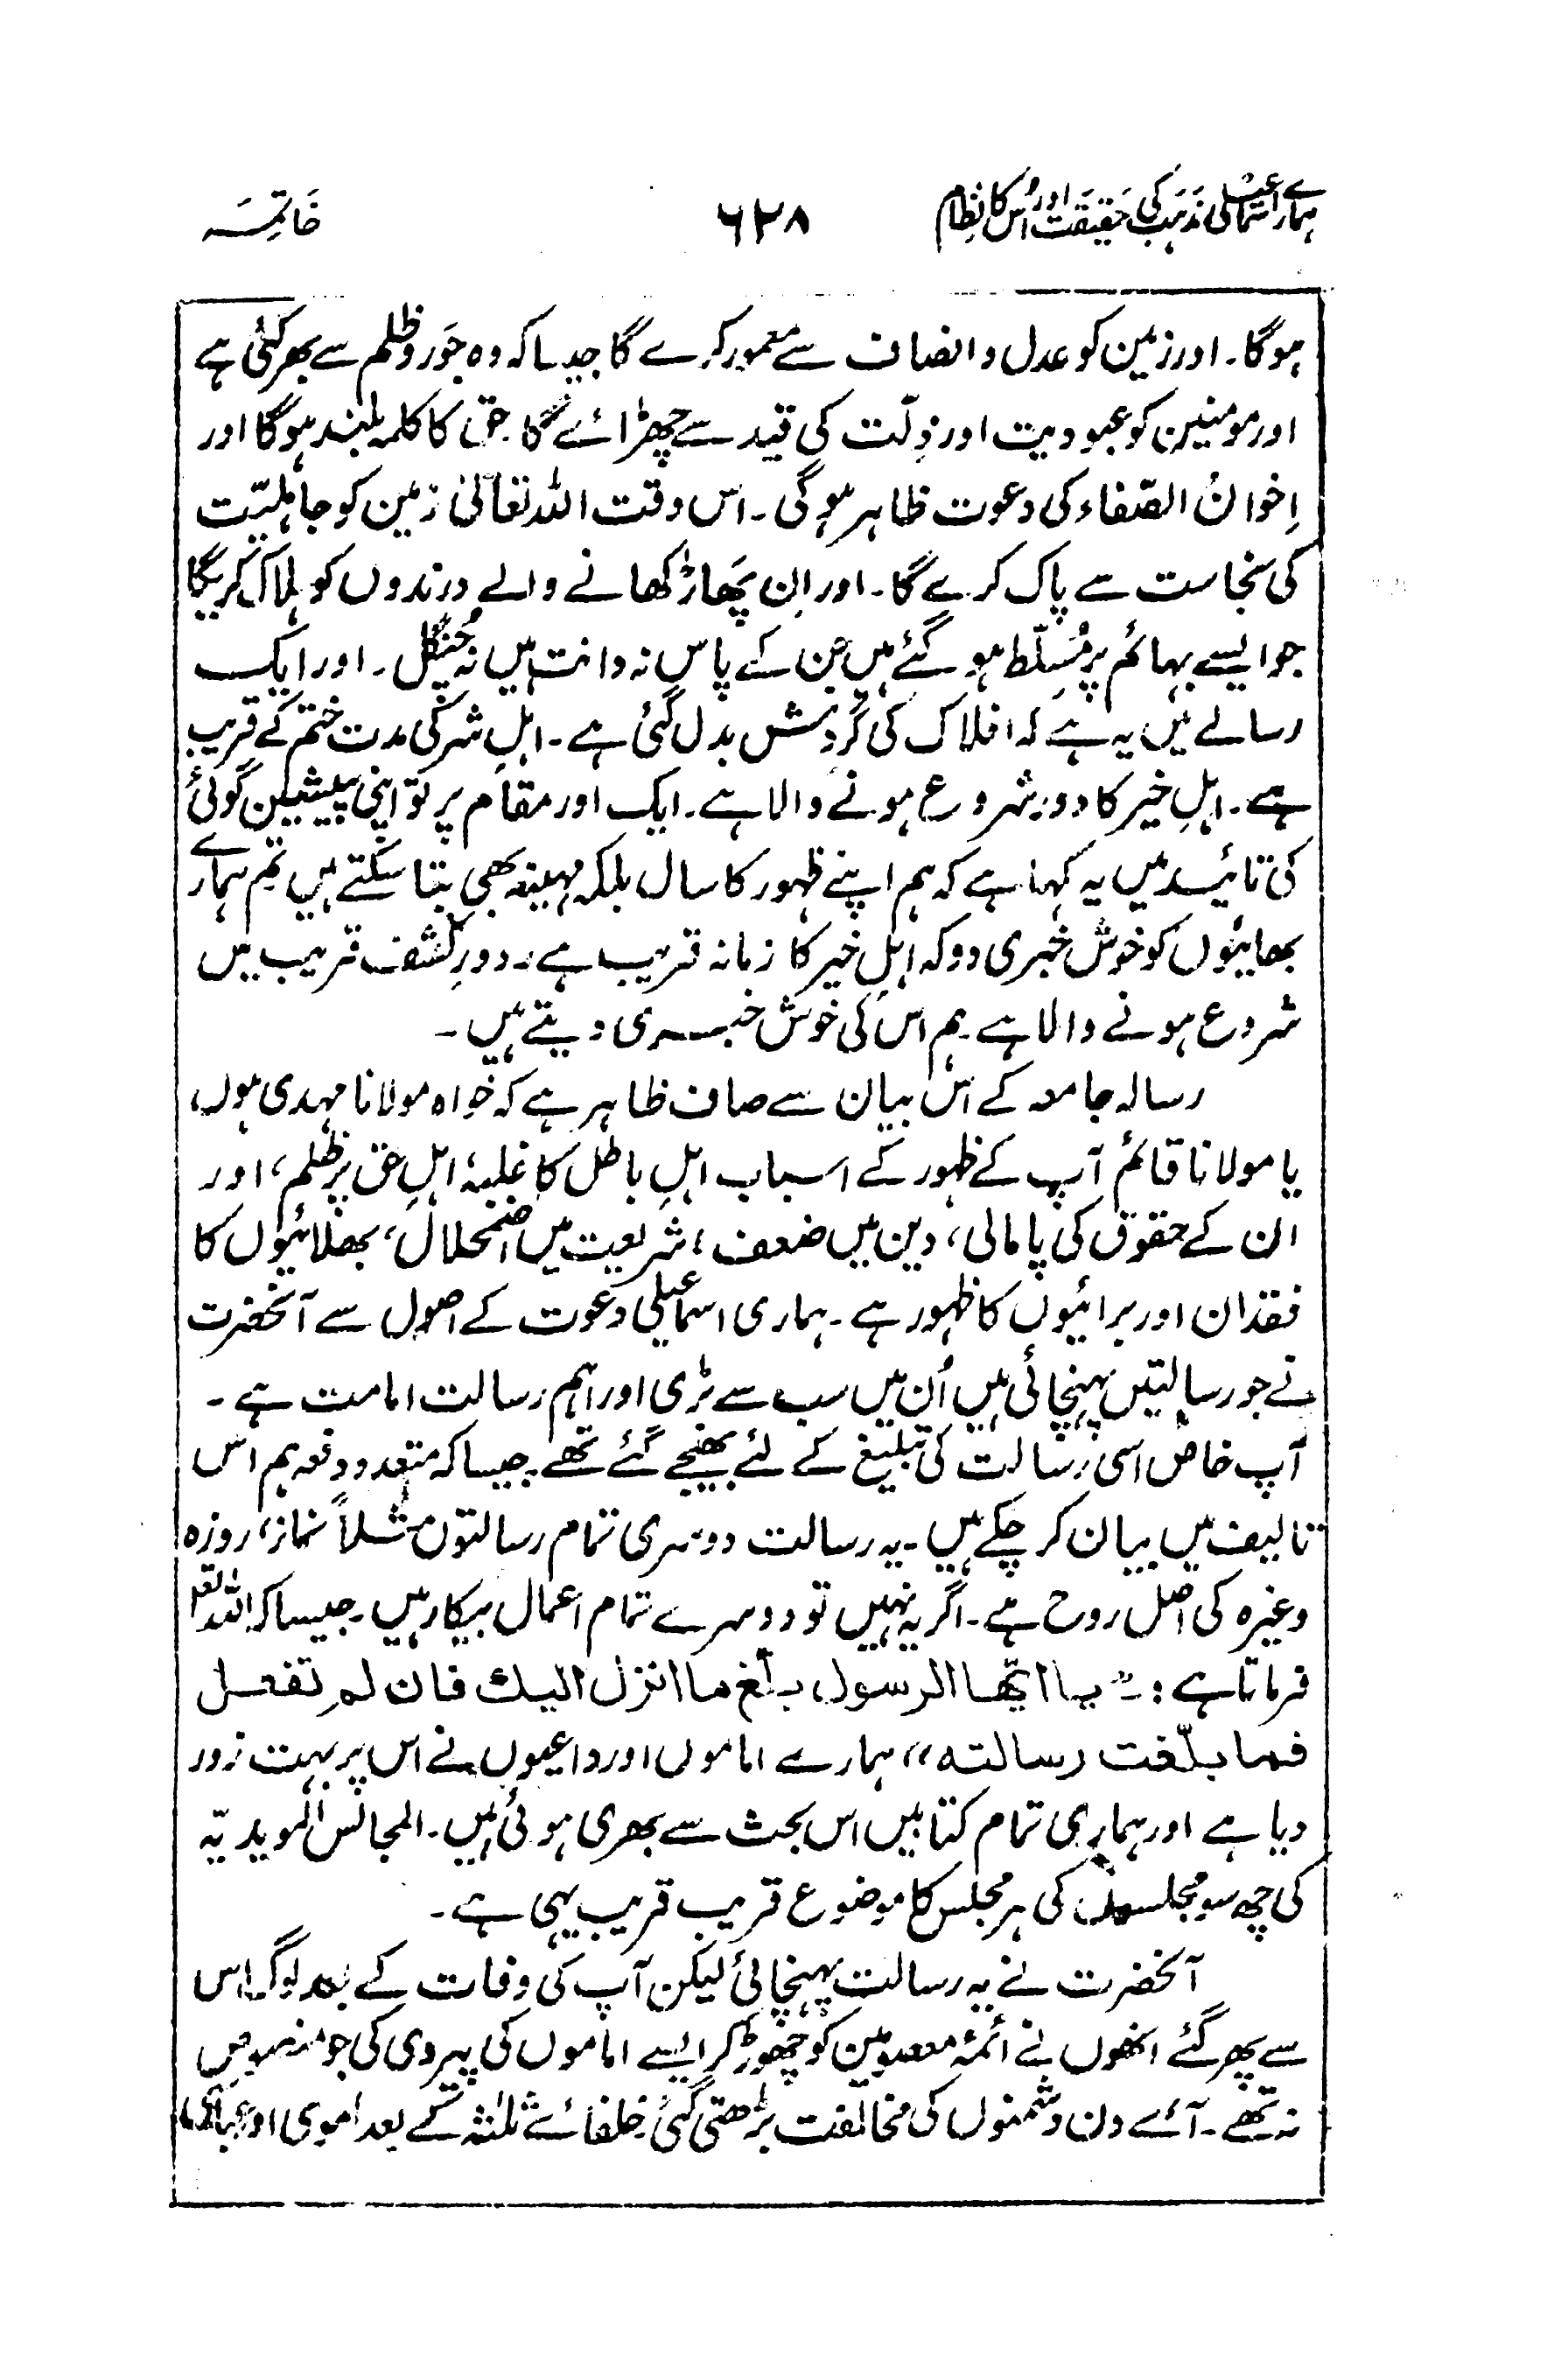 ہمارے اسمٰعیلی مذہب کی حقیقت اور اُس کا نظام
۶۲۸
خاتمہ
ہوگا۔ اور زمین کو عدل و انصاف سے معمور کرے گا جیسا کہ وہ جَور و ظلم سے بھر گئی ہے
اور مومنین کو عبودیت اور ذِلّت کی قید سے چھڑائے گا۔ حق کا کلمہ بلند ہوگا اور
اِخوانُ الصّفاء کی دعوت ظاہر ہوگی۔ اس وقت اللہ تعالٰی زمین کو جاہلیّت
کی نجاست سے پاک کرے گا۔ اور اِن پَھاڑ کھانے والے درندوں کو ہلاک کریگا
جو ایسے بہائم پر مُسلّط ہو گئے ہیں جن کے پاس نہ دانت ہیں نہ چُنگل۔ اور ایک
رسالے میں یہ ہے کہ افلاک کی گردش بدل گئی ہے۔ اہلِ شر کی مدت ختم کے قریب
ہے۔ اہلِ خیر کا دور شروع ہونے والا ہے۔ ایک اور مقام پر تو اپنی پیشین گوئی
کی تائید میں یہ کہا ہے کہ ہم اپنے ظہور کا سال بلکہ مہینہ بھی بتا سکتے ہیں تم ہمارے
بھائیوں کو خوش خبری دو کہ اہلِ خیر کا زمانہ قریب ہے۔ دورِ کشف قریب میں
شروع ہونے والا ہے۔ ہم اس کی خوش خبری دیتے ہیں۔
رسالہ جامعہ کے اس بیان سے صاف ظاہر ہے کہ خواہ مولانا مہدی ہوں
یا مولانا قائم آپ کے ظہور کے اسباب اہلِ باطل کا غلبہ اہلِ حق پر ظلم، اور
ان کے حقوق کی پامالی، دین میں ضعف، شریعت میں اضمحلال، بھلائیوں کا
فقدان اور برائیوں کا ظہور ہے۔ ہماری اسماعیلی دعوت کے اصول سے آنحضرت
نے جو رسالتیں پہنچائی ہیں اُن میں سب سے بڑی اور اہم رسالت امامت ہے۔
آپ خاص اسی رسالت کی تبلیغ کے لئے بھیجے گئے تھے۔ جیسا کہ متعدد دفعہ ہم اس
تالیف میں بیان کر چکے ہیں۔ یہ رسالت دوسری تمام رسالتوں مثلاً نماز، روزہ
وغیرہ کی اصل روح ہے۔ اگر یہ نہیں تو دوسرے تمام اعمال بیکار ہیں۔ جیسا کہ اللہ تعا
فرماتا ہے :۔ "یا ایّھا الرسول بلّغ ما انزل الیك فان لم تفعل
فما بلّغت رسالته" ہمارے اماموں اور داعیوں نے اس پر بہت زور
دیا ہے اور ہماری تمام کتابیں اس بحث سے بھری ہوئی ہیں۔ المجالس المویدیّہ
کی چھ سو مجلسوں کی ہر مجلس کا موضوع قریب قریب یہی ہے۔
آنحضرت نے یہ رسالت پہنچائی لیکن آپ کی وفات کے بعد لوگ اس
سے پھر گئے انھوں نے ائمۂ معصومین کو چھوڑ کر ایسے اماموں کی پیروی کی جو منصوص
نہ تھے۔ آئے دن دشمنوں کی مخالفت بڑھتی گئی۔ خلفائے ثلٰثہ کے بعد اموی اور عباسی